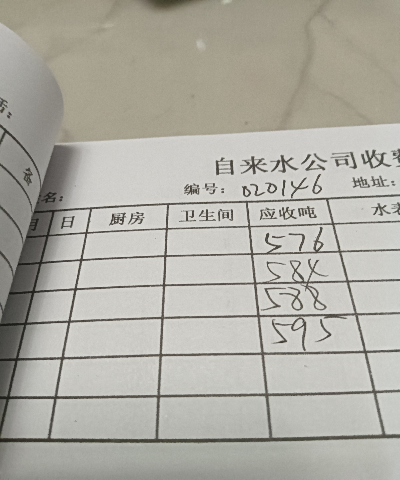 自来水公司收费
名: 编号: 020146 地址:
月 日 厨房 卫生间 应收吨 水表
576
584
588
595